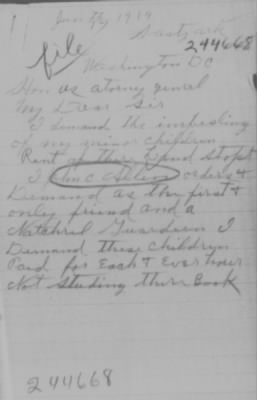 June 1919
file
244668
Washington DC
Hon as atorny genrel
My Dear Sir
I demand the imbesling
of my minor children
Rent of their land stopt
I John C orders &
Demand as the first &
only friend and a
Natchrel Guardeen I
Demand these Childryn
Paid for Each & Ever hour
Not studing their Book
244668